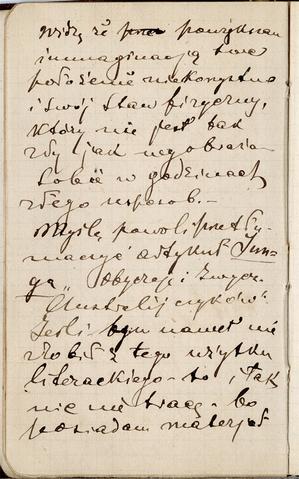 widzę że powiększam
immaginacją swe
położenie niekorzystne
i swój stan fizyczny,
który nie jest tak
zły jak wyobrażam
sobie w godzinach
złego usposob. –
Myślę powoli przetłu-
maczyć artykuł Jun-
ga „Obyczaje i zwycz.
Australijczyków".
Jeśli bym nawet nie
zrobił z tego użytku
literackiego – to i tak
nic nie tracę – bo
posiadam materjał